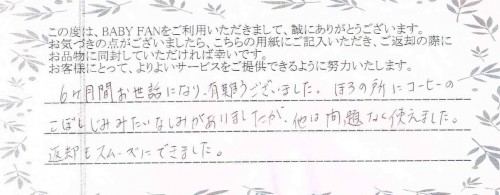 この度は、BABY FANをご利用いただきまして、誠にありがとうございます。
お気づきの点がございましたら、こちらの用紙にご記入いただき、ご返却の際に
お品物に同封していただければ幸いです。
お客様にとって、よりよいサービスをご提供できるように努力いたします。
6ヶ月間お世話になり、有難うございました。ほろの所にコーヒーの
こぼしじみみたいなしみがありましたが、他は問題なく使えました。
返却もスムーズにできました。